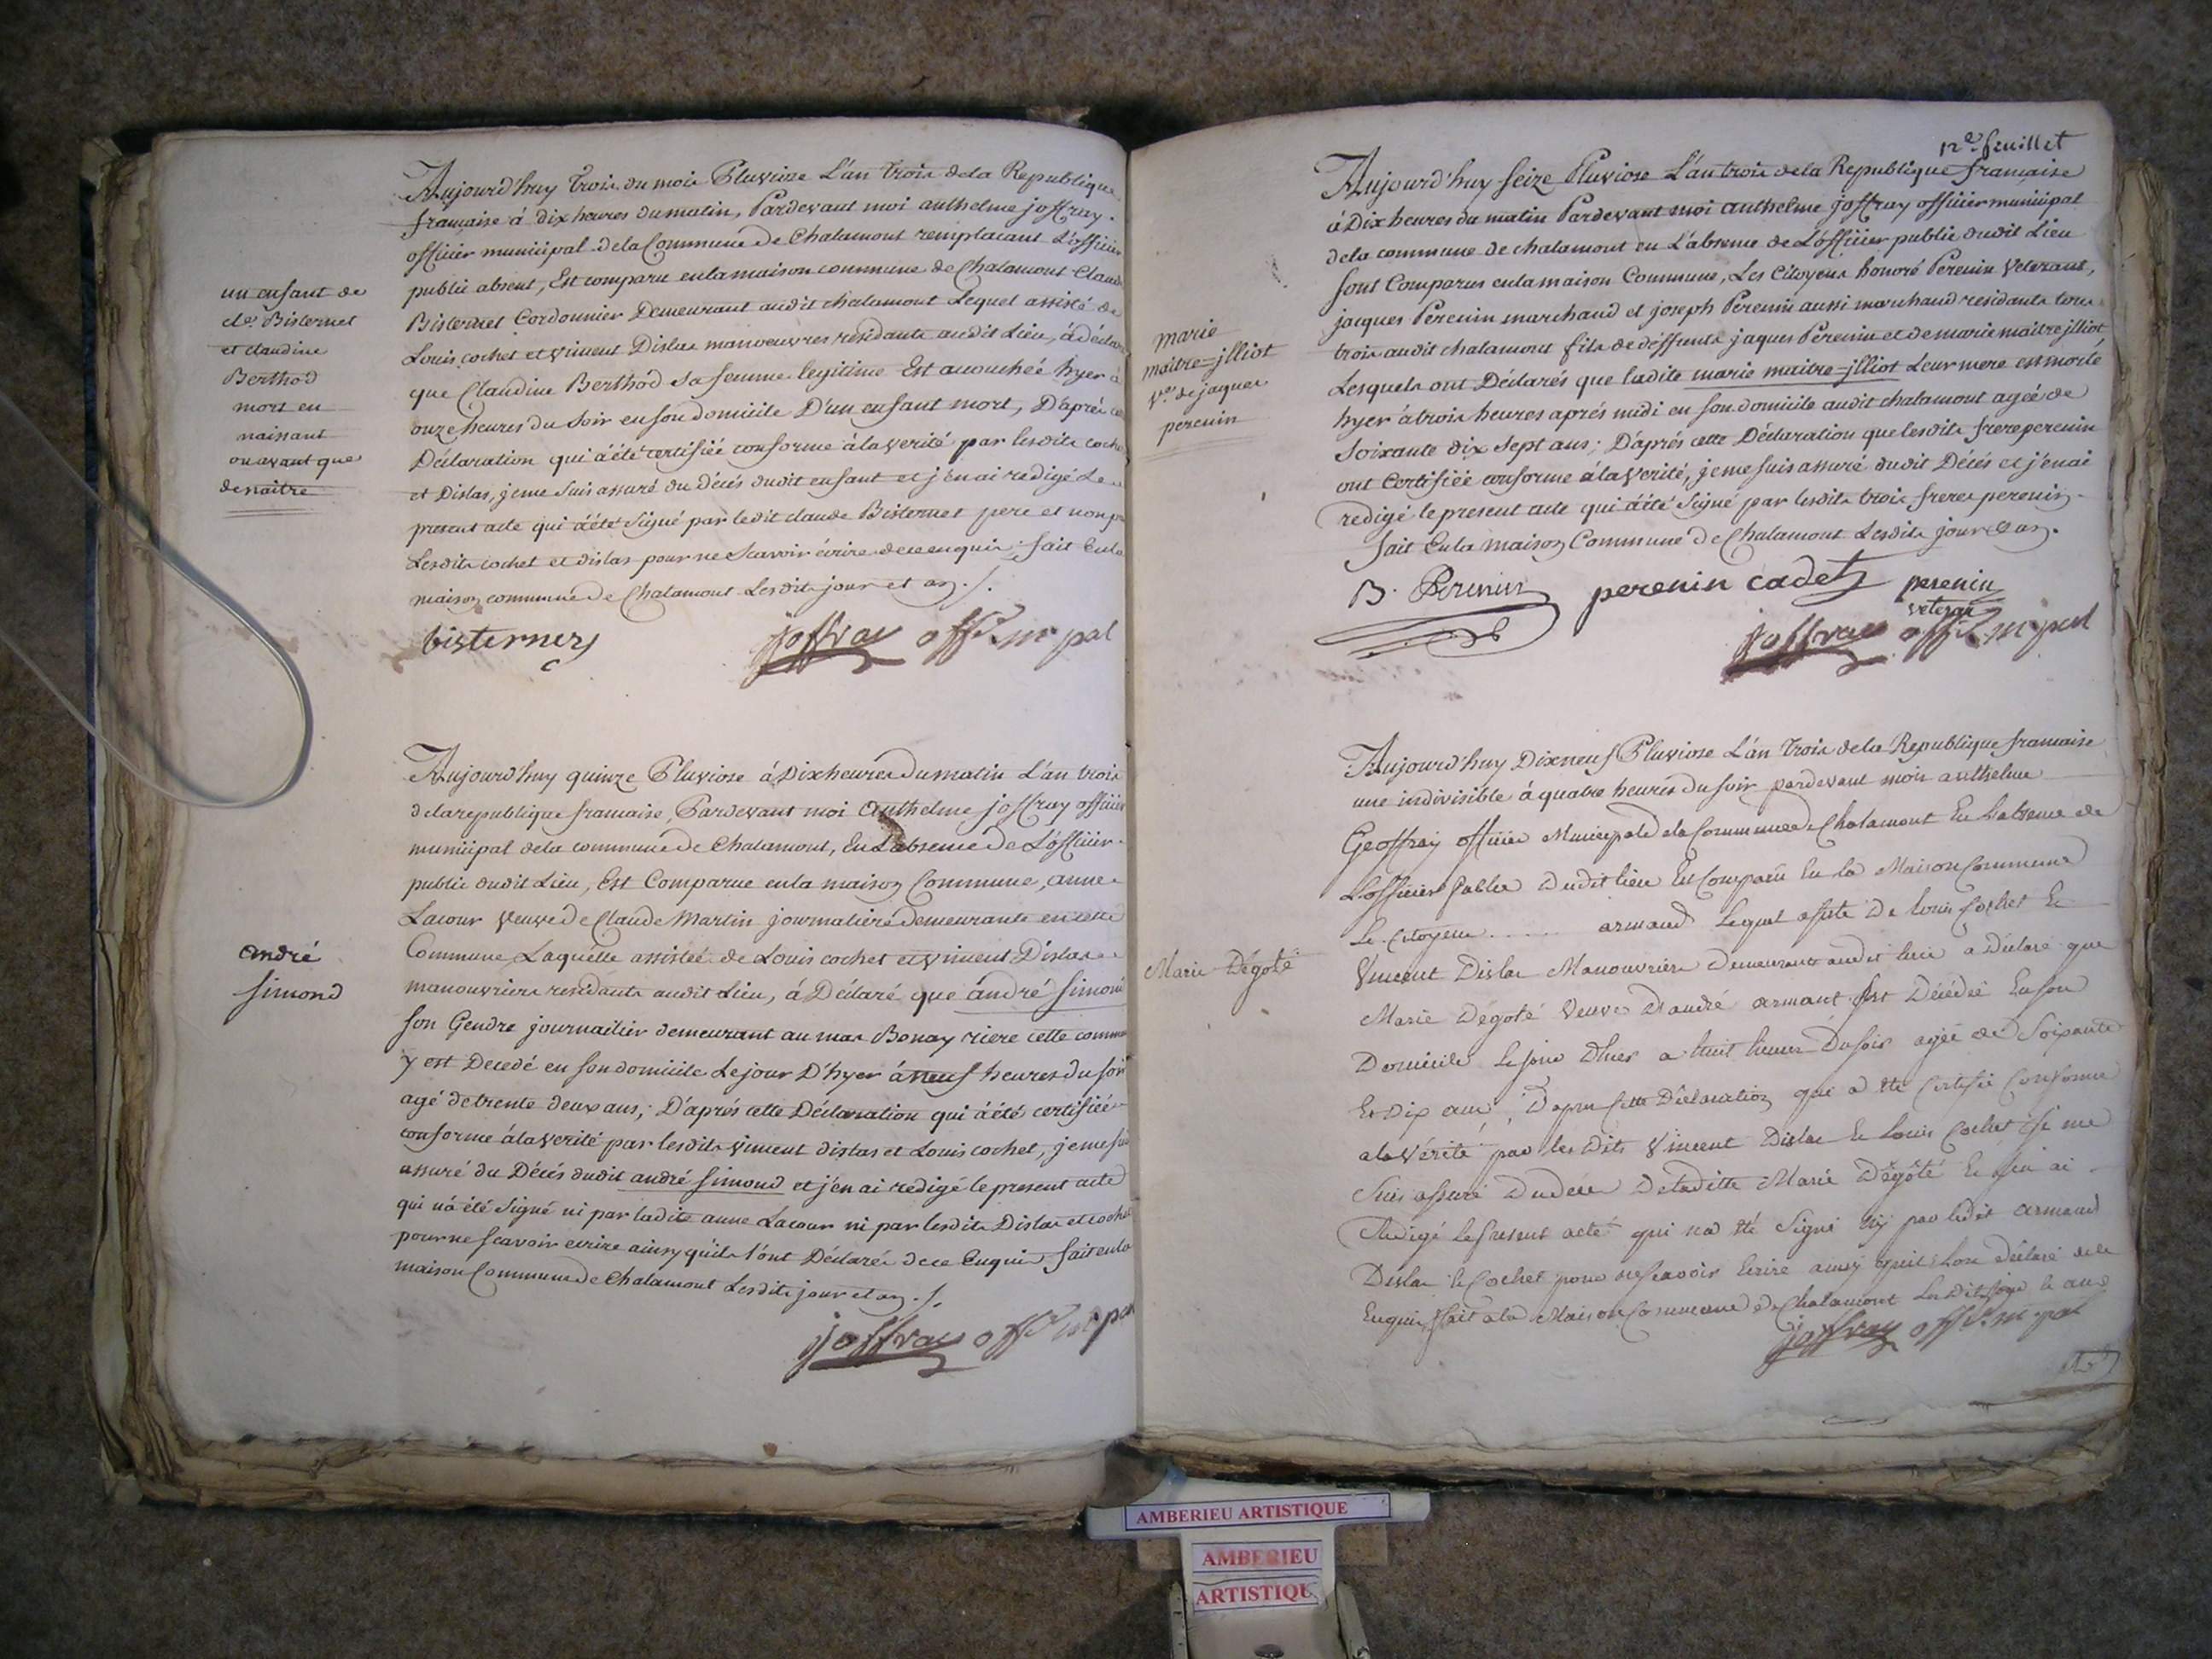 un enfant de
cl.de Bisternet
et claudine
Berthod
mort en
naissant
ou avant que
de naitre
Aujourd'huy trois du mois Pluviose L'an trois dela Republique
francaise à dix heures du matin, Pardevant moi anthelme joffray
officier municipal dela Commune de Chalamont remplacant L'officier
public absent, Est comparu en la maison commune de Chalamont Claude
Bisternet Cordonnier Demeurant audit chalamont Lequel assisté de
Louis cochet et vincent Dislas manoeuvres residants audit Lieu, à déclaré
que Claudine Berthod sa femme legitime Est accouchée hyer à
onze heures du soir en son domicile D'un enfant mort, D'après
Déclaration qui à été certifiée conforme à la verité par lesdits cochet
et Dislas, je me suis assuré du décés dudit enfant et j'en ai redigé Le
present acte qui à été signé par ledit claude Bisternet pere et non par
Lesdits cochet et dislas pour ne scavoir écrire de ce enquis, fait En la
maison commune de Chalamont Lesdits jour et an ./.
bisternez joffray off.er m.pal
andré
simond
Aujourd'huy quinze Pluviose à Dix heures du matin L'an trois
dela republique francaise, Pardevant moi Anthelme joffray officier
municipal dela commune de Chalamont, En L'absence de L'officier
public dudit Lieu, Est Comparue en la maison Commune, anne
Lacour veuve de Claude Martin journaliere demeurante en cette
Commune Laquelle assistée de Louis cochet et vincent Dislas
manouvriers residants audit Lieu, à Déclaré que andré simond
son Gendre journailier demeurant au mas Bonay riere cette commune
y est Decedé en son domicile Le jour D'hyer à neuf heures du soir
agé de trente deux ans; D'aprés cette Déclaration qui à été certifiée
conforme à la verité par lesdits vincent dislas et Louis cochet, je me suis
assuré du Décés dudit andré simond et j'en ai redigé le present acte
qui n'a été signé ni par ladite anne Lacour ni par lesdits Dislas et cochet
pour ne scavoir ecrire ainsy qu'ils l'ont Déclaré de ce Enquis fait en la
maison Commune de Chalamont Lesdits jour et an ./.
joffray off.er m.pal
12e feuillet
marie
maitre=jlliot
v.ve de jaques
perenin
Aujourd'huy seize Pluviose L'an trois dela Republique francaise
à Dix heures du matin Pardevant moi anthelme joffray officier municipal
dela commune de chalamont en L'absence de L'officier public dudit Lieu
sont Comparus en la maison Commune, Les Citoyens honoré Perenin Veterant,
jacques Perenin marchand et joseph Perenin aussi marchand residants tous
trois audit chalamont fils de déffunts jaques Perenin et de marie maitre jlliot,
Lesquels ont Déclarés que ladite marie maitre=jlliot Leur mere est morte
hyer à trois heures aprés midi en son domicile audit chalamont agée de
soixante dix sept ans; D'aprés cette Déclaration que lesdits freres perenin
ont Certifiée conforme à la verité, je me suis assuré dudit Décés et j'en ai
redigé le present acte qui à été signé par lesdits trois freres perenin
fait En la maison Commune de Chalamont Lesdits jour et an.
B. Perenin perenin cadet perenin
veteran
joffray off.er m.pal
Marie Dégoté
Aujourd'huy Dixneuf Pluviose L'an trois dela Republique francaise
une indivisible à quatre heures du soir pardevant moi anthelme
Geoffray officier Municipal de la Commune de Chalamont En L'absence de
L'officier Public Dudit lieu Est Comparu En la Maison Commune
Le Citoyen ..... armand Lequel assisté De Louis Cochet Et
Vincent Dislas Manouvriers Demeurant audit lieu a Déclaré que
Marie Dégoté Veuve D'andré armant Est Décédée En son
Domicile Le jour D'hier a huit heures Du soir agée de Soixante
Et Dix ans, D'apres Cette Déclaration qui a été Certifié Conforme
a la Vérité par les Dits Vincent Dislas Et Louis Cochet je me
suis assuré Du décés De la ditte Marie Dégoté Et j'en ai
Redigé Le present acte qui n'a été Signé ny par ledit armand
Dislas Et Cochet pour ne scavoir Ecrire ainsy qu'ils L'on déclaré de ce
Enquis fait a la Maison Commune de Chalamont Les Dits jour Et an
joffray off.er m.pal
AMBERIEU ARTISTIQUE
AMBERIEU
ARTISTIQUE